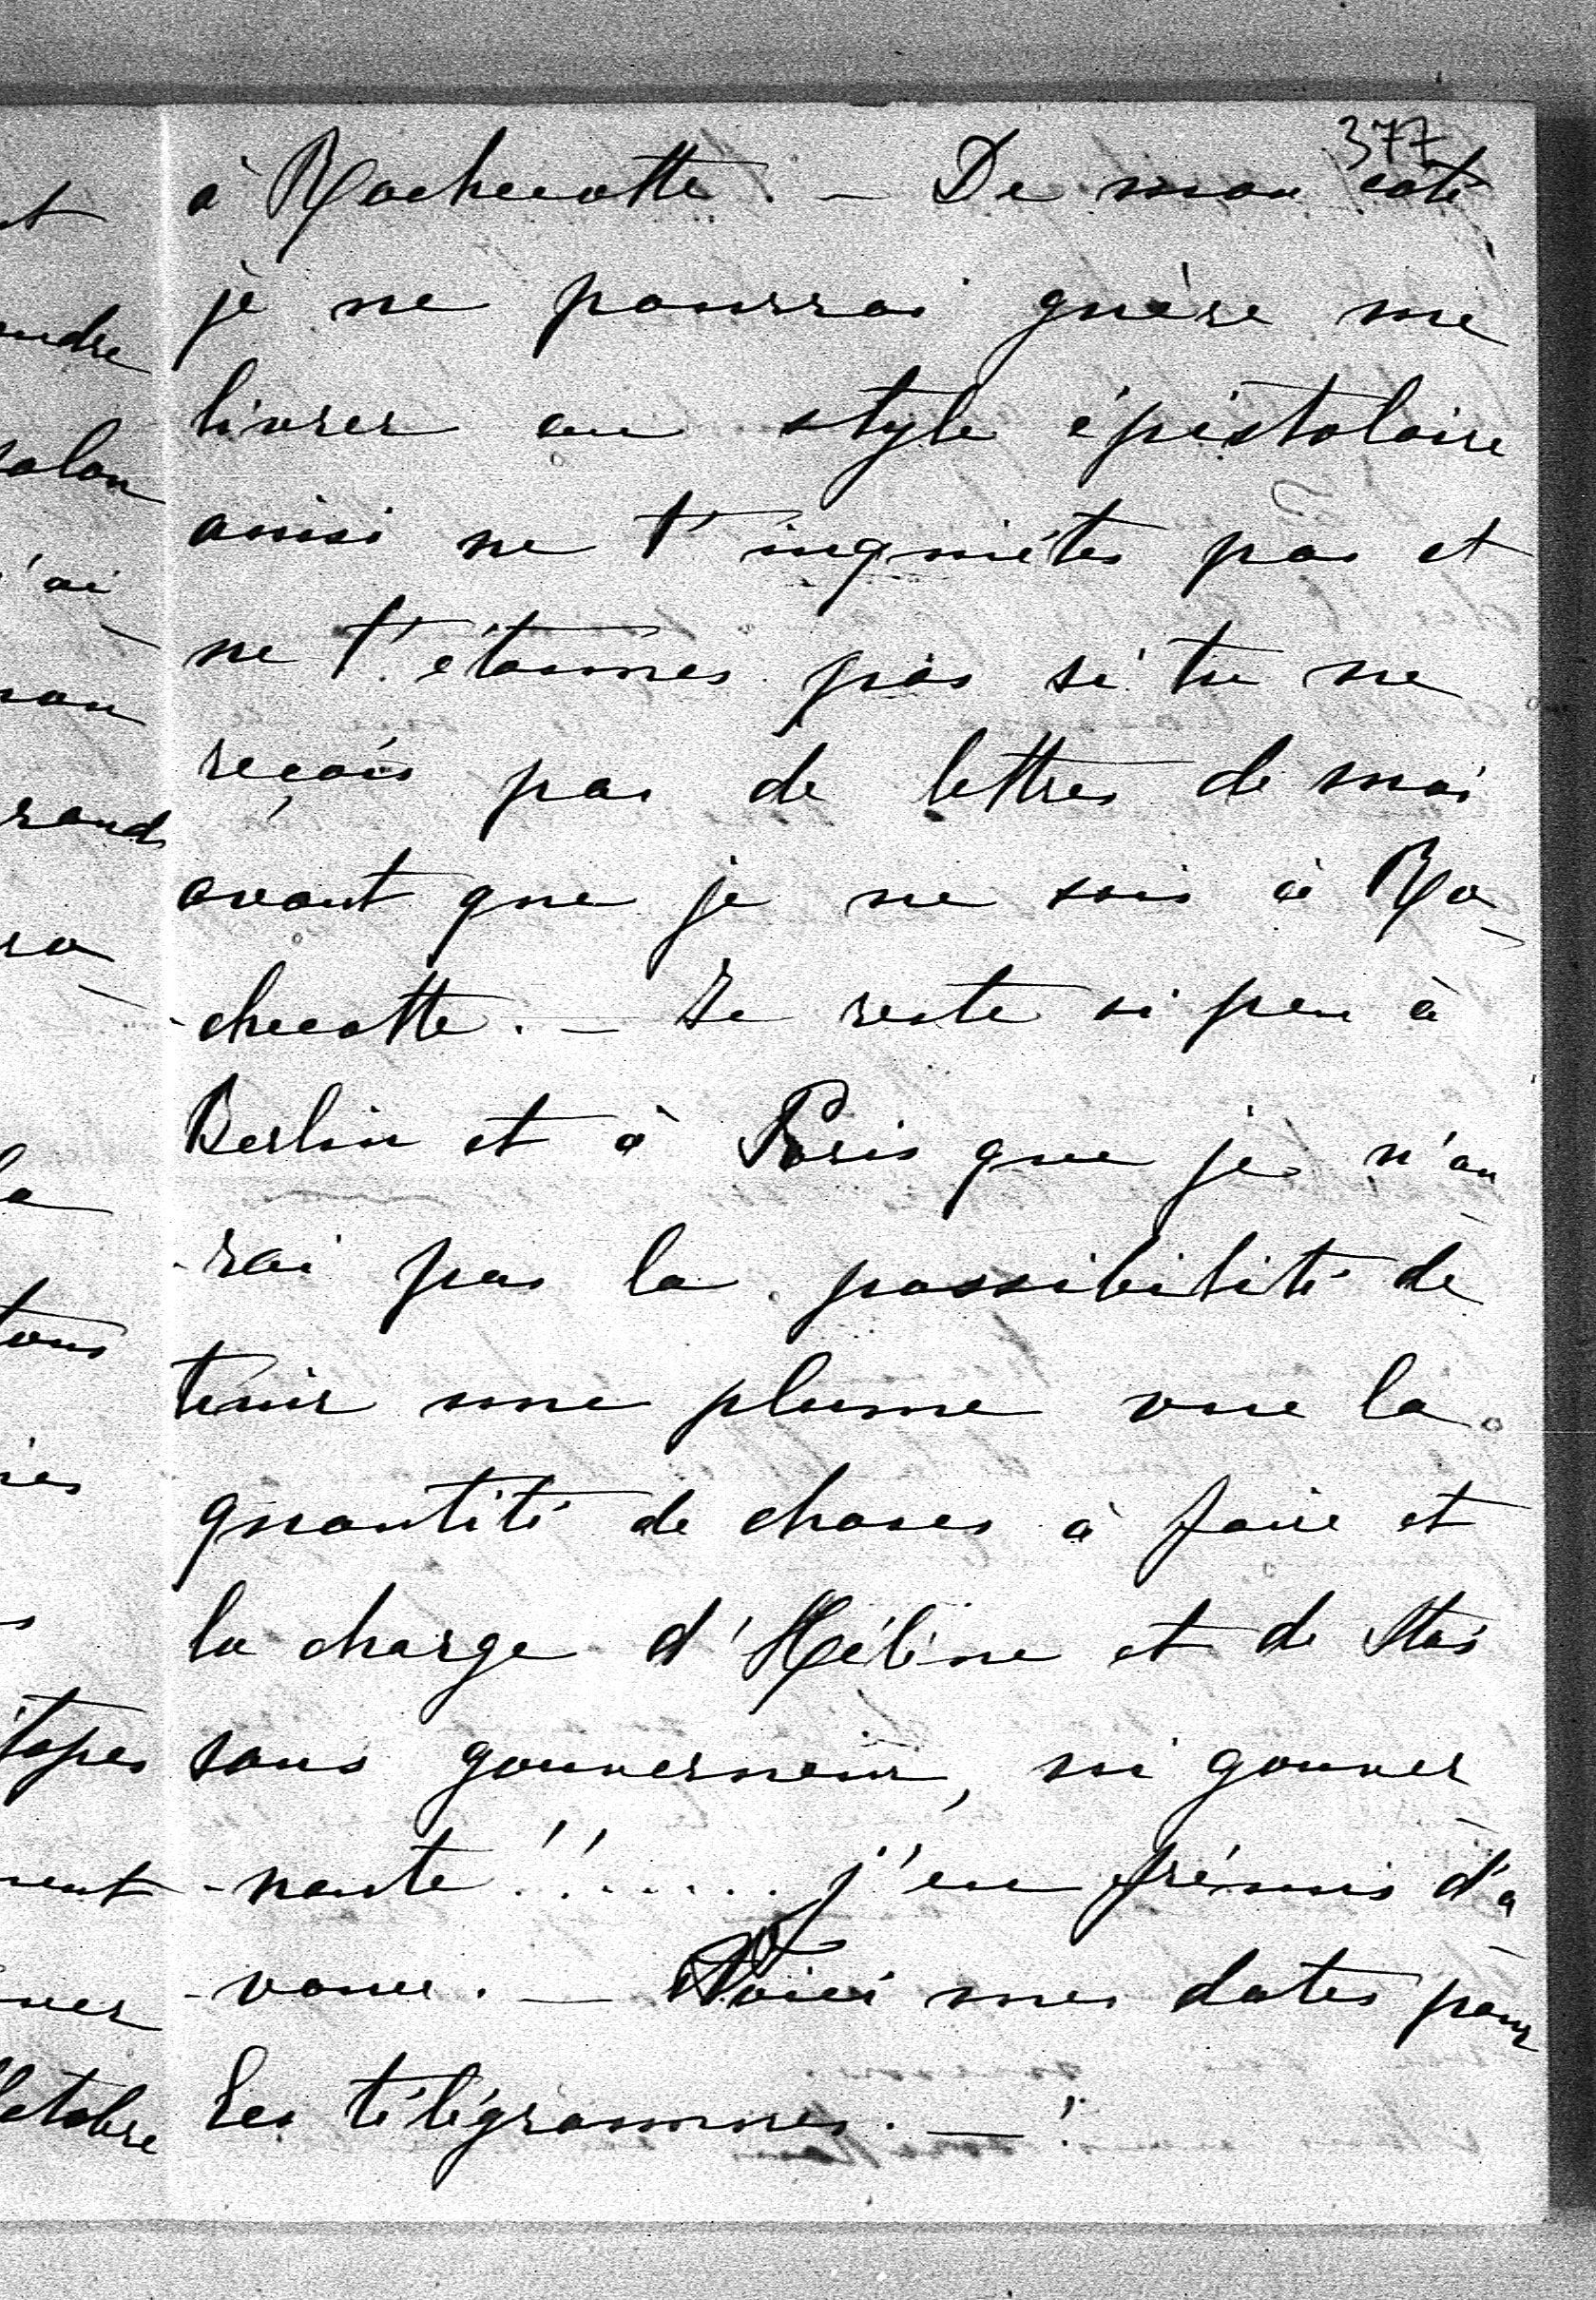 377
à Rochecotte. — De mon coté
je ne pourrai guère me
livrer au style épistolaire
ainsi ne t'inquiètes pas et
ne t'étonnes pas si tu ne
reçois pas de lettres de moi
avant que je ne sois à Ro-
-checotte. — Je reste si peu à
Berlin et à Paris que je n'au-
-rai pas la possibilité de
tenir une plume vue la
quantité de choses à faire et
la charge d'Hélène et de Stas
sans gouverneur, ni gouver-
-nante!!...... j'en frémis d'a-
-vance. — Voici mes dates pour
les télégrammes. —